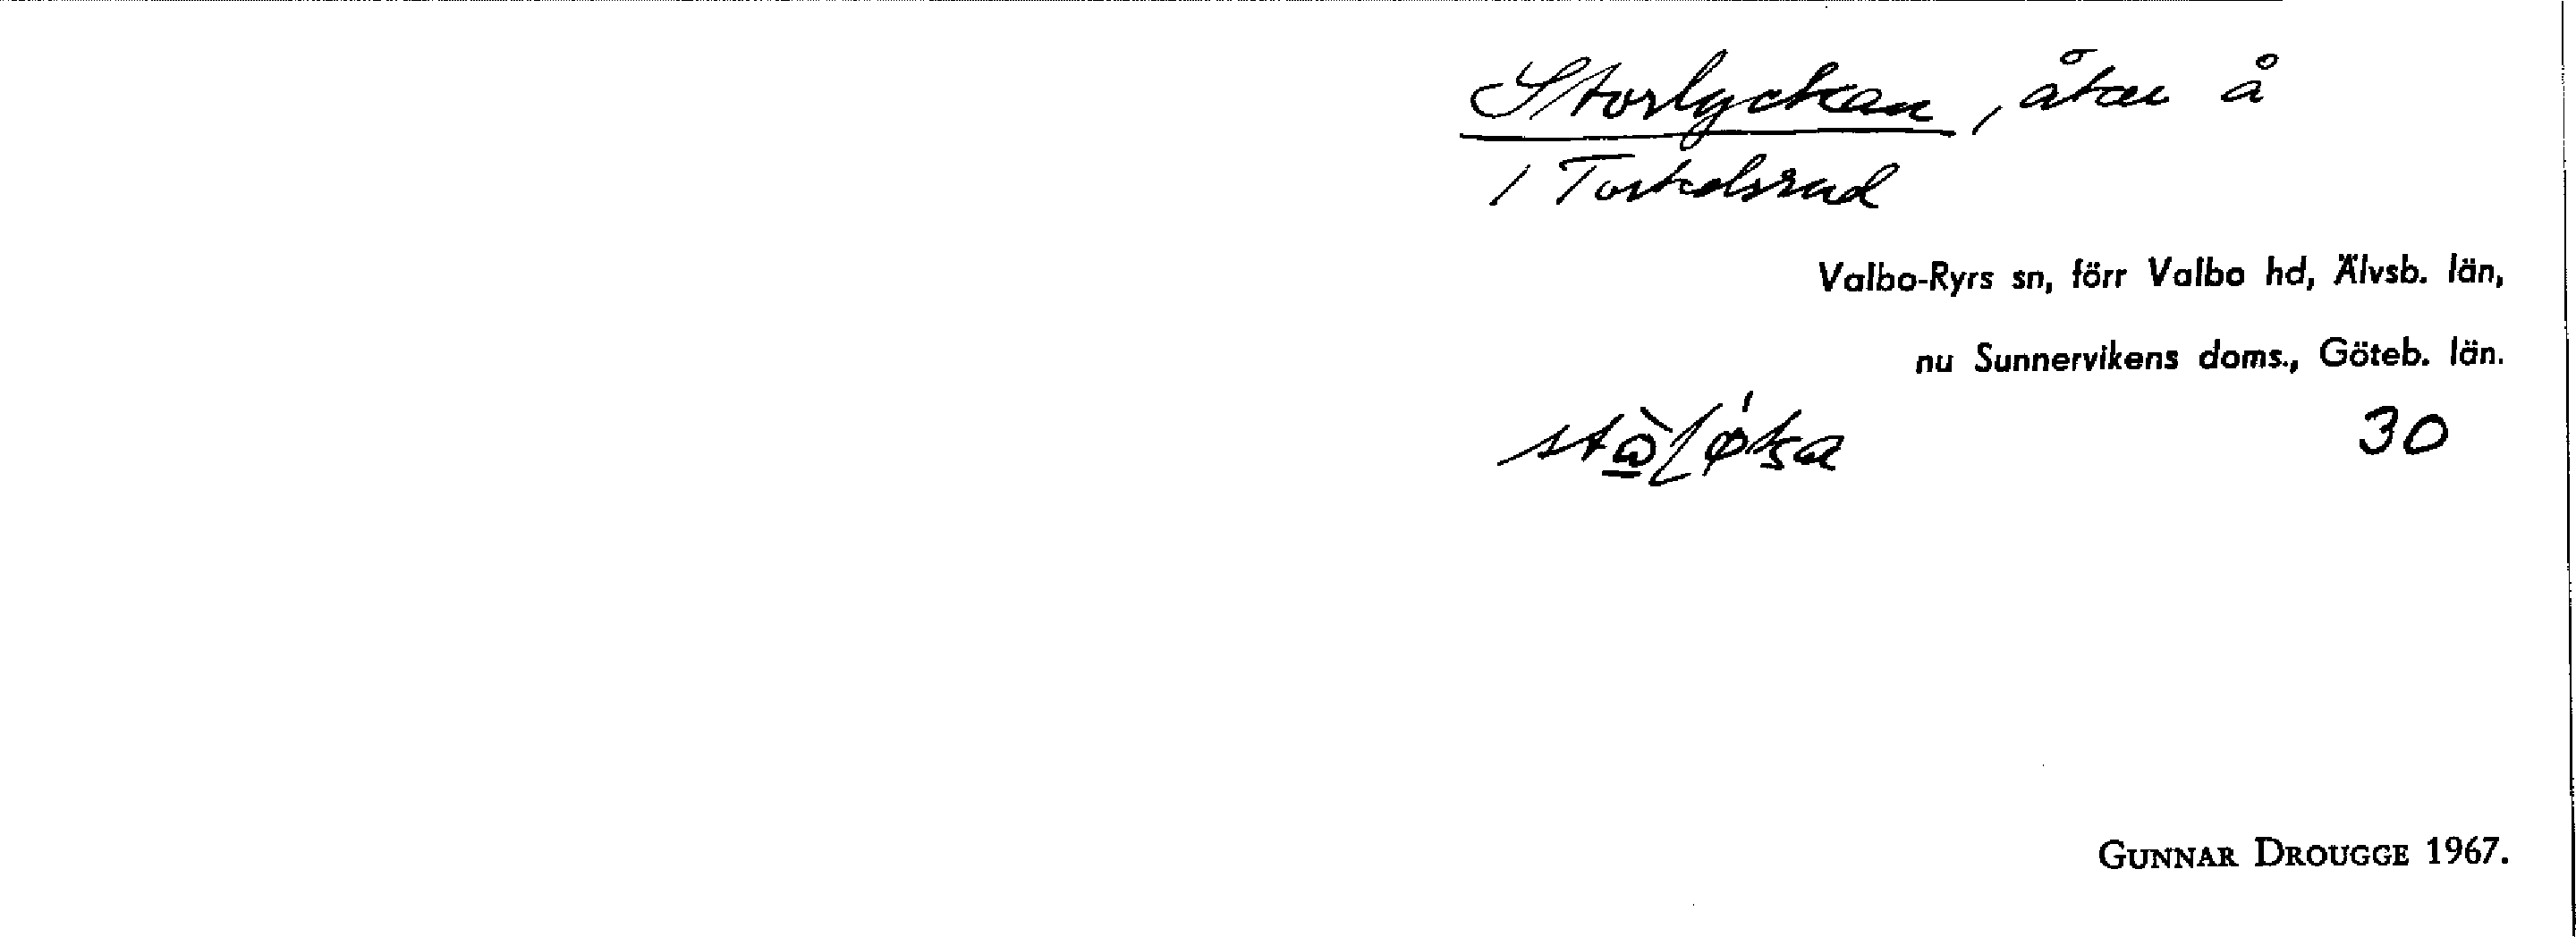 Storlyckan, åker å
/ Torkelsrud
Valbo-Ryrs sn, förr Valbo hd, Älvsb. län,
nu Sunnervikens doms., Göteb. län.
30
GUNNAR DROUGGE 1967.